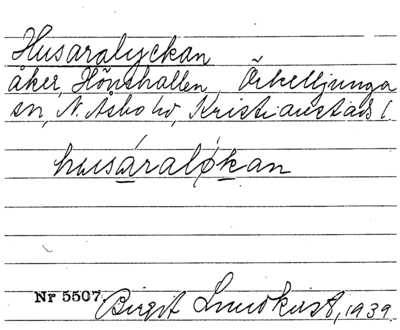 Husaralyckan
åker, Hönshallen, Örkelljunga
sn, N. Åsbo hd, Kristianstads l.
husáraløkan
Nr 5507. Birgit Lundkvist, 1939